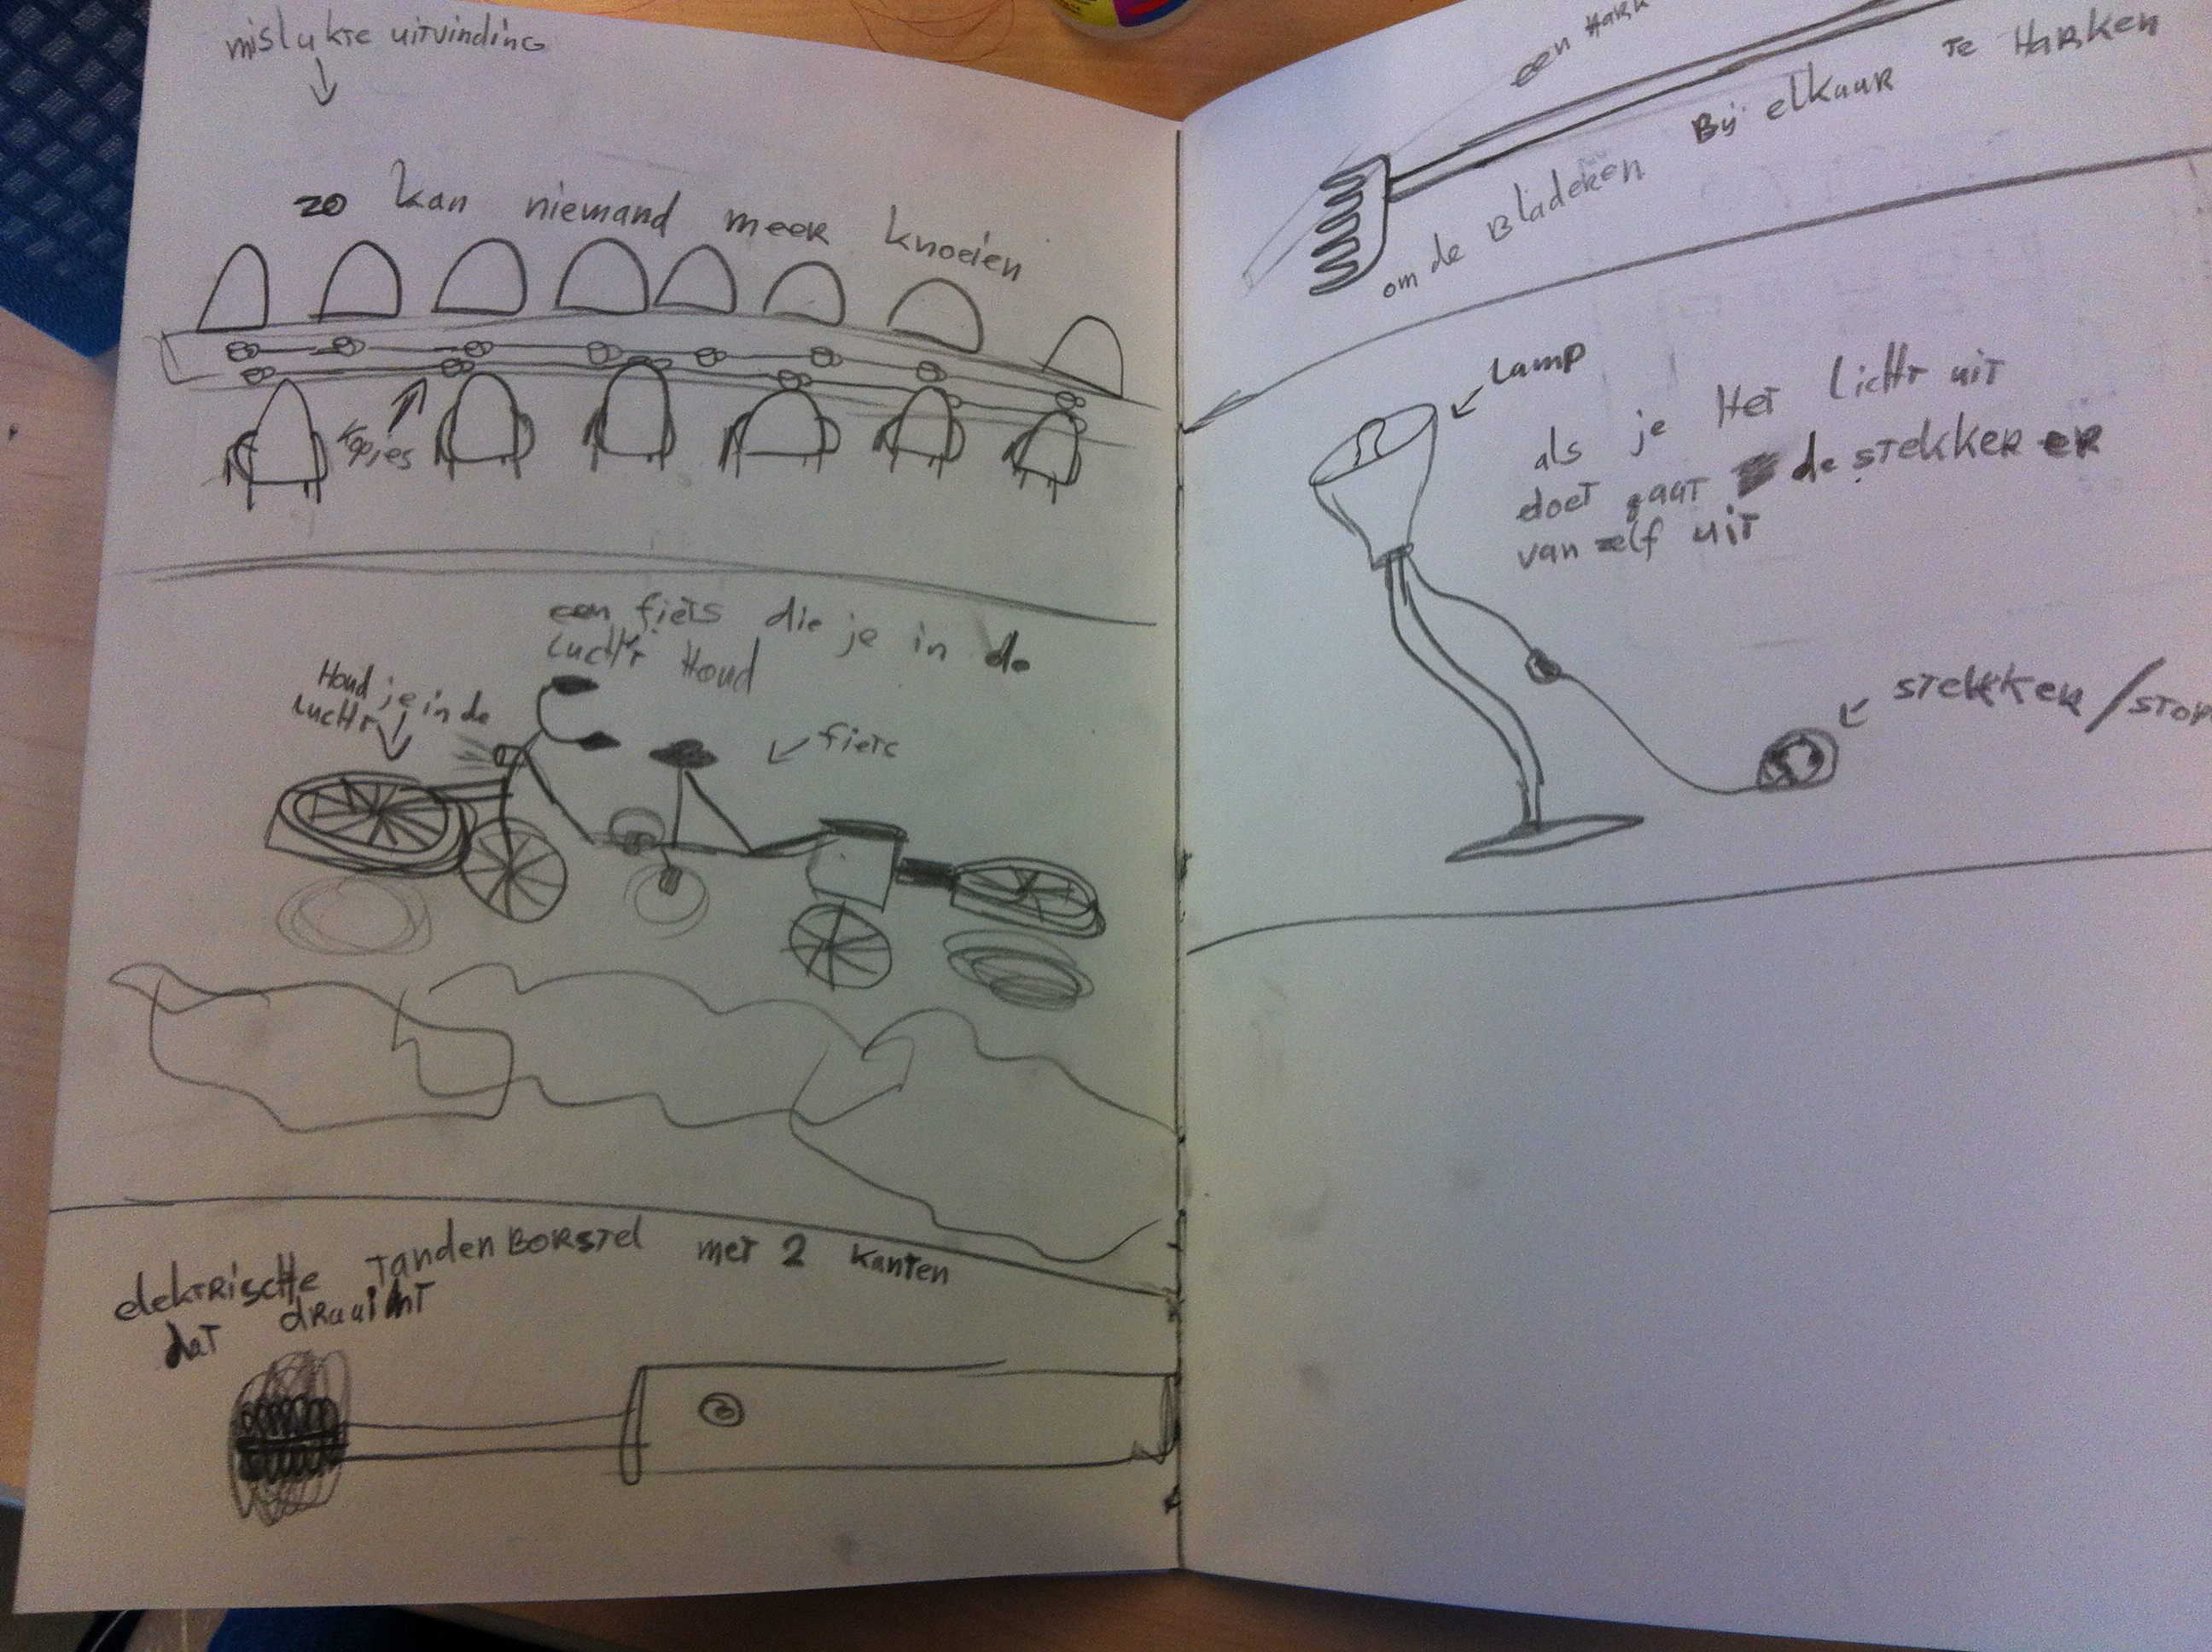 mislukte uitvinding
zo kan niemand meer knoeien
kopjes
een fiets die je in de
lucht houd
Houd je in de
lucht
fiets
elektrische tandenborstel met 2 kanten
dat draauint
een Hark
om de Bladeren Bij elkaar te Harken
lamp
als je Het licht uit
doet gaat de stekker er
van zelf uit
stekker/stop